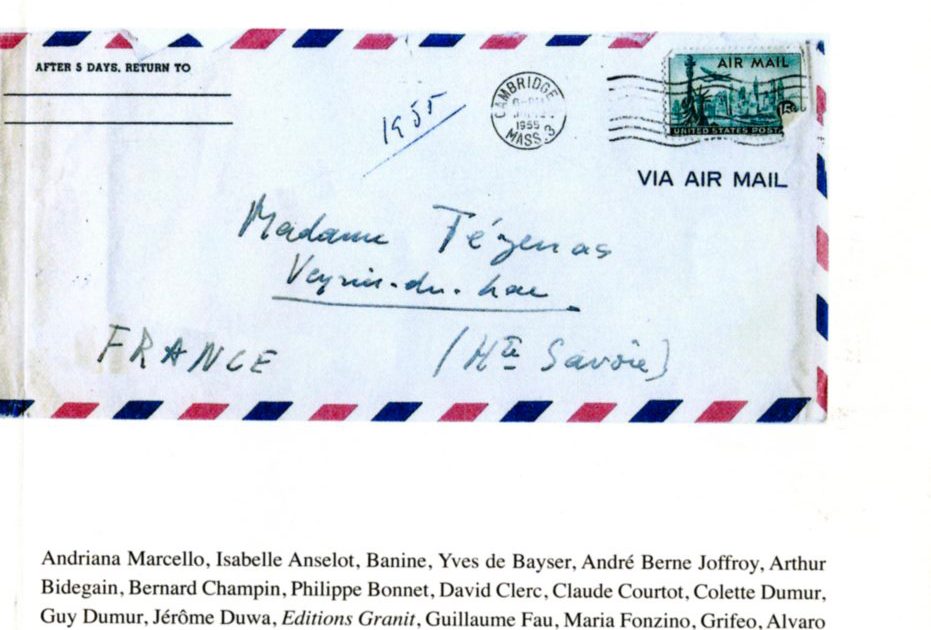 AFTER 5 DAYS, RETURN TO
1955
CAMBRIDGE
1955
MASS. 3
AIR MAIL
15¢
UNITED STATES POST
VIA AIR MAIL
Madame Tézenas
Veyrier-du-Lac
FRANCE (Hte Savoie)
Andriana Marcello, Isabelle Anselot, Banine, Yves de Bayser, André Berne Joffroy, Arthur
Bidegain, Bernard Champin, Philippe Bonnet, David Clerc, Claude Courtot, Colette Dumur,
Guy Dumur, Jérôme Duwa, Editions Granit, Guillaume Fau, Maria Fonzino, Grifeo, Alvaro